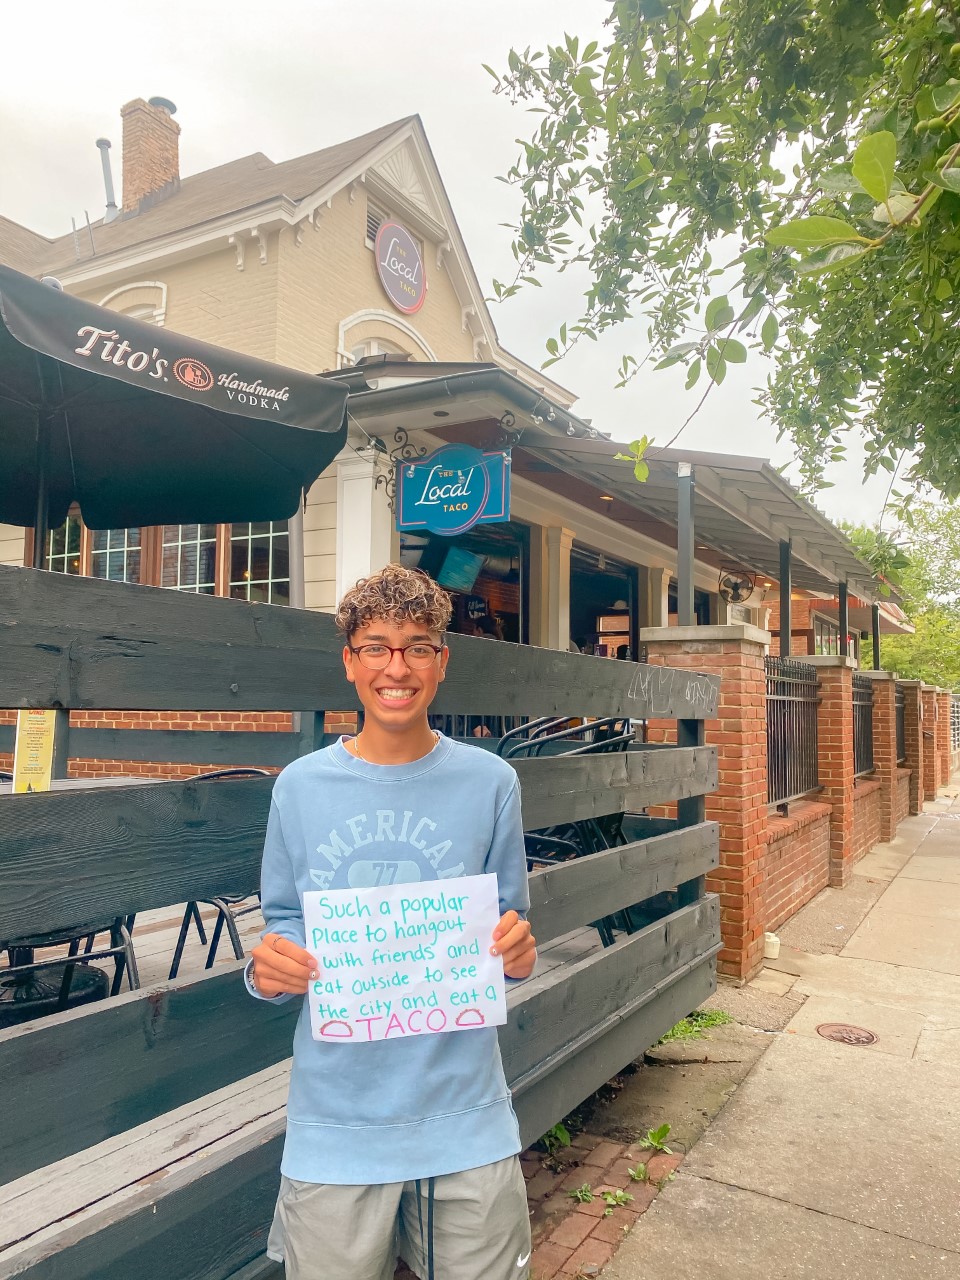 THE
Local
TACO
Tito's
Handmade
VODKA
THE
Local
TACO
AMERICAN
77
Such a popular
place to hangout
with friends and
eat outside to see
the city and eat a
TACO